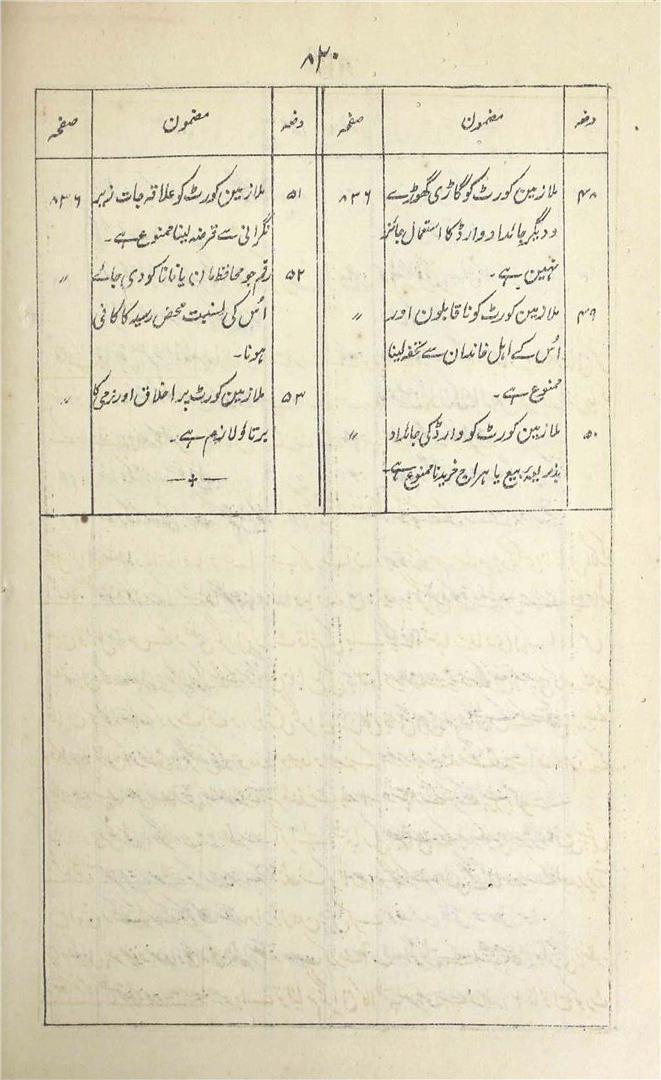 ۸۳۰
دفعہ مضمون صفحہ
۴۸ ملازمین کورٹ کو گاڑی گھوڑے ۸۳۶
و دیگر جائداد وارڈ کا استعمال جائز
نہین ہے۔
۴۹ ملازمین کورٹ کو نا قابلون اور ״
اُس کے اہل خاندان سے تحفہ لینا
ممنوع ہے۔
۵۰ ملازمین کورٹ کو وارڈ کی جائداد ״
بذریعہ بیع یا ہراج خریدنا ممنوع ہے۔
دفعہ مضمون صفحہ
۵۱ ملازمین کورٹ کو علاقہ جات زیر ۸۳۶
نگرانی سے قرضہ لینا ممنوع ہے۔
۵۲ رقم جو محافظ مان یا نانا کو دی جائے ״
اُس کی نسبت محض رسید کا کافی
ہونا۔
۵۳ ملازمین کورٹ پر اخلاق اور نرمی کا ״
برتاؤ لازم ہے۔